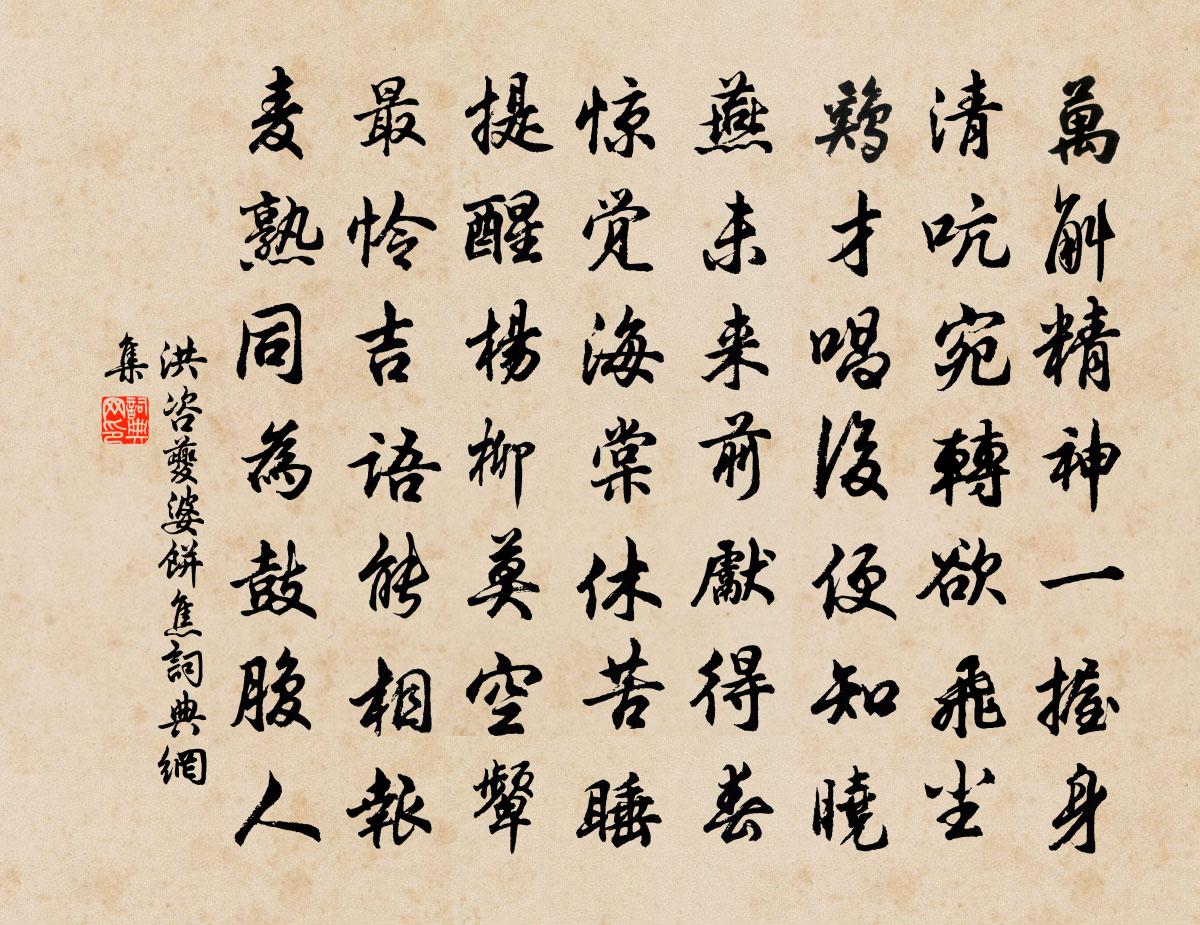 萬斛精神一握身
清吭宛轉欲飛尘
鶏才唱後便知曉
燕未来前獻得春
惊觉海棠休苦睡
提醒楊柳莫空顰
最怜吉語能相報
麦熟同為鼓腹人
洪咨夔婆餅焦詞典網
集
詞典网印